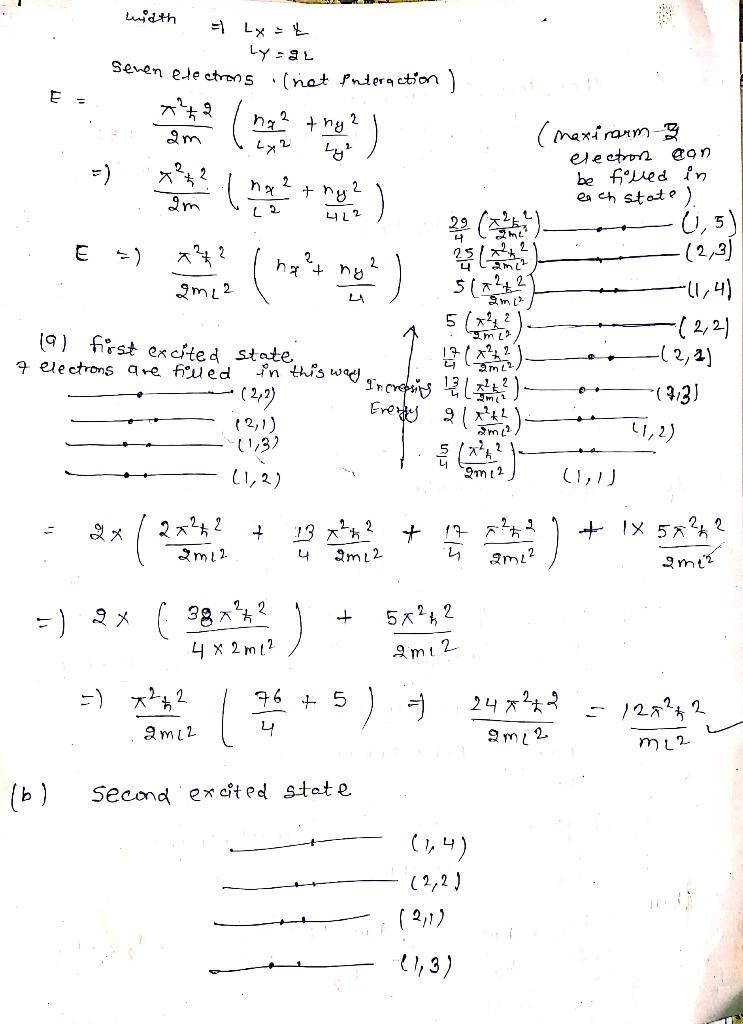 width => Lx = L
Ly = 2L
Seven electrons . (not Interaction)
E = π²ħ²/2m (nx²/Lx² + ny²/Ly²)
=) π²ħ²/2m (nx²/L² + ny²/4L²)
E =) π²ħ²/2mL² (nx² + ny²/4)
(maximum 2
electron can
be filled in
each state)
29/4 (π²ħ²/2mL²) (1,5)
25/4 (π²ħ²/2mL²) (2,3)
5 (π²ħ²/2mL²) (1,4)
5 (π²ħ²/2mL²) (2,2)
17/4 (π²ħ²/2mL²) (2,1)
13/4 (π²ħ²/2mL²) (1,3)
2 (π²ħ²/2mL²) (1,2)
5/4 (π²ħ²/2mL²) (1,1)
Increasing
Energy
(a) first excited state
7 electrons are filled in this way
(2,2)
(2,1)
(1,3)
(1,2)
= 2 x (2π²ħ²/2mL² + 13/4 π²ħ²/2mL² + 17/4 π²ħ²/2mL²) + 1x 5π²ħ²/2mL²
=) 2 x (38π²ħ²/4 x 2mL²) + 5π²ħ²/2mL²
=) π²ħ²/2mL² (76/4 + 5) => 24π²ħ²/2mL² = 12π²ħ²/mL²
(b) Second excited state
(1,4)
(2,2)
(2,1)
(1,3)